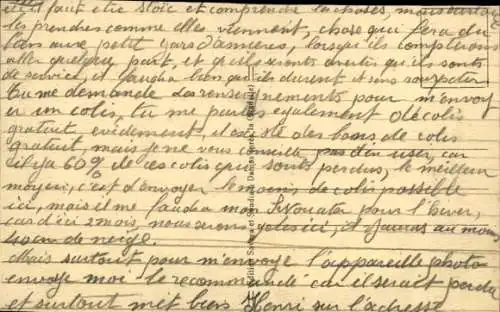 et il faut être stoïc et comprendre la choses, mais surtout
les prendres comme elles viennent, chose qui fera du
bien aux petit gars d'Asnieres, lorsqu'ils compterons
aller quelque part, et qu'ils seronts avertir qu'ils sonts
de service, et faudra bien qu'ils durent et sans rouspeter
Tu me demande des renseignements pour m'envoyer
un colis, tu me parles également de colis
gratuit, évidemment, il existe des bons de colis
gratuit, mais je ne vous conseille pas d'en user, car
il y a 60% de ces colis qui sonts perdus, le meilleur
moyen, c'est d'envoyer le moins de colis possible
ici, mais il me faudra mon pour l'hiver,
car d'ici 2 mois, nous serons gelés ici, et j'aurais au moins
de neige.
Mais surtout pour m'envoyé l'appareille photo
envoye moi le recommandé car il serait perdu
et surtout met bien Henri sur l'adresse